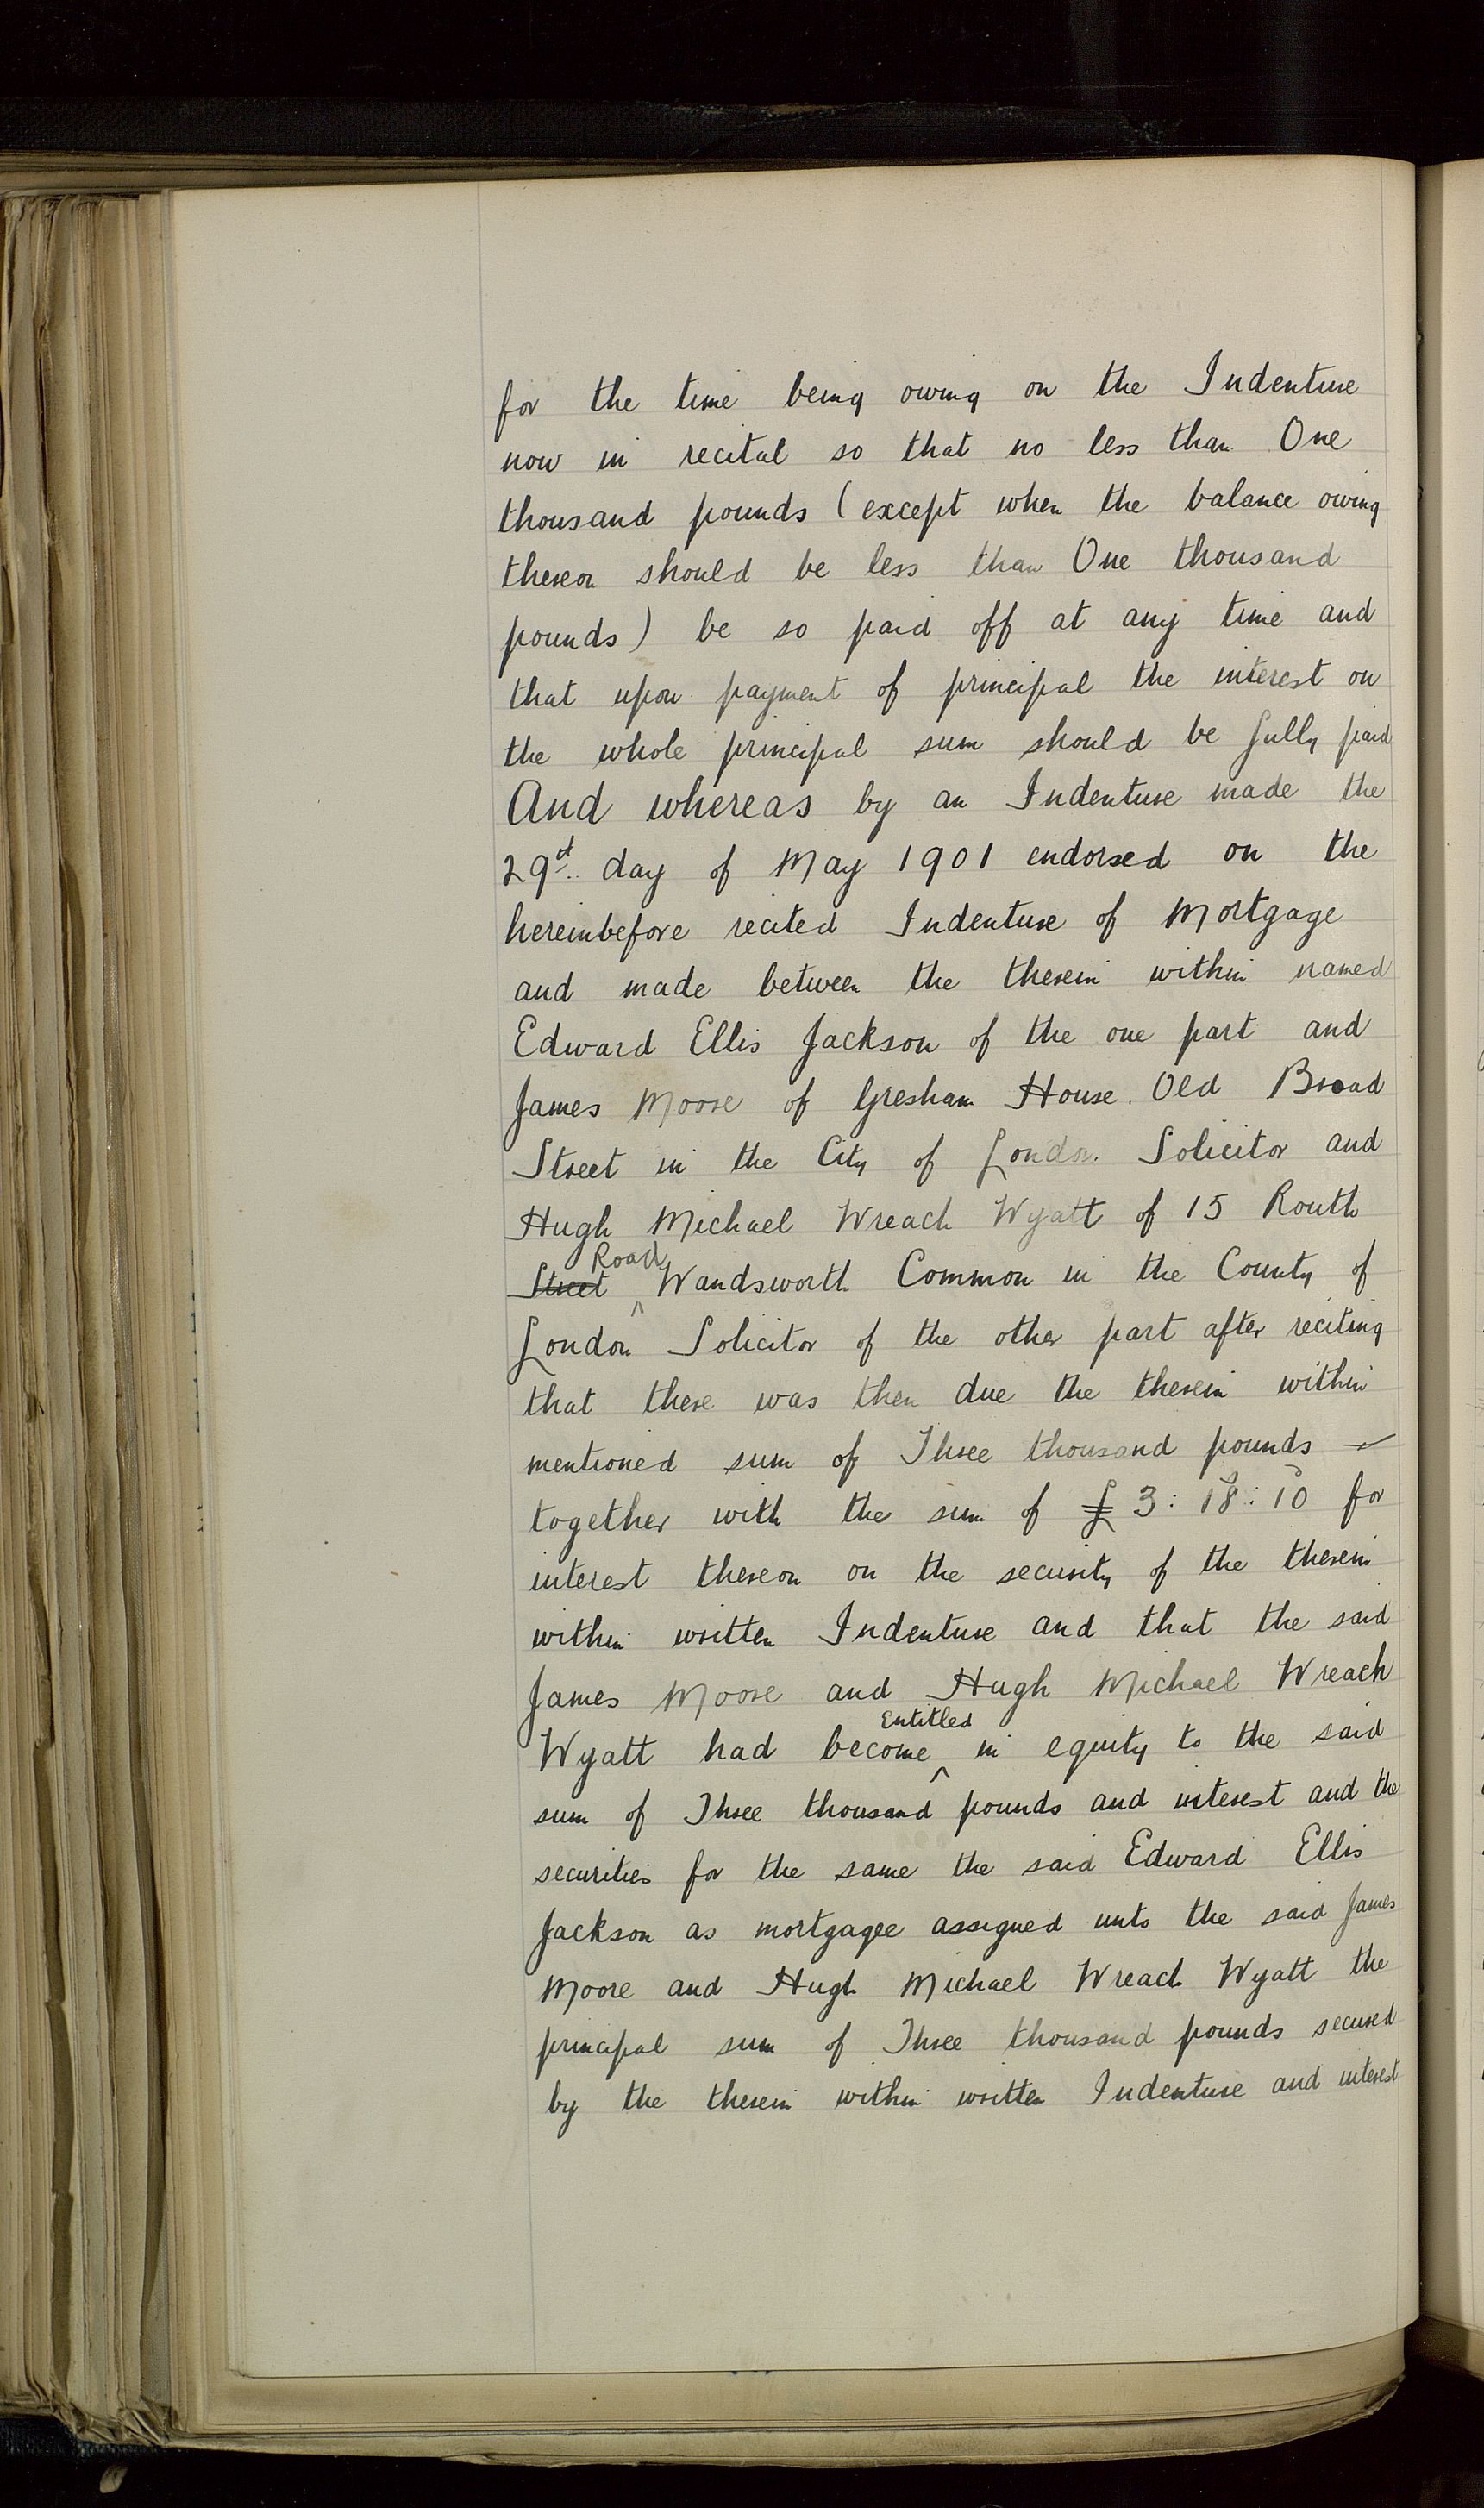 for the time being owing on the Indenture
now in recital so that no less than One
thousand pounds (except when the balance owing
thereon should be less than One thousand
pounds) be so paid off at any time and
that upon payment of principal the interest on
the whole principal sum should be fully paid
And whereas by an Indenture made the
29th day of May 1901 endorsed on the
hereinbefore recited Indenture of Mortgage
and made between the therein within named
Edward Ellis Jackson of the one part and
James Moore of Gresham House. Old Broad
Street in the City of London. Solicitor and
Hugh Michael Wreach Wyatt of 15 Routh
Street Road Wandsworth Common in the County of
London Solicitor of the other part after reciting
that there was then due the therein within
mentioned sum of Three thousand pounds
together with the sum of £3:18:10 for
interest thereon on the security of the therein
within written Indenture and that the said
James Moore and Hugh Michael Wreach
Wyatt had become Entitled in equity to the said
sum of Three thousand pounds and interest and the
securities for the same the said Edward Ellis
Jackson as mortgagee assigned unto the said James
Moore and Hugh Michael Wreach Wyatt the
principal sum of Three thousand pounds secured
by the therein within written Indenture and interest